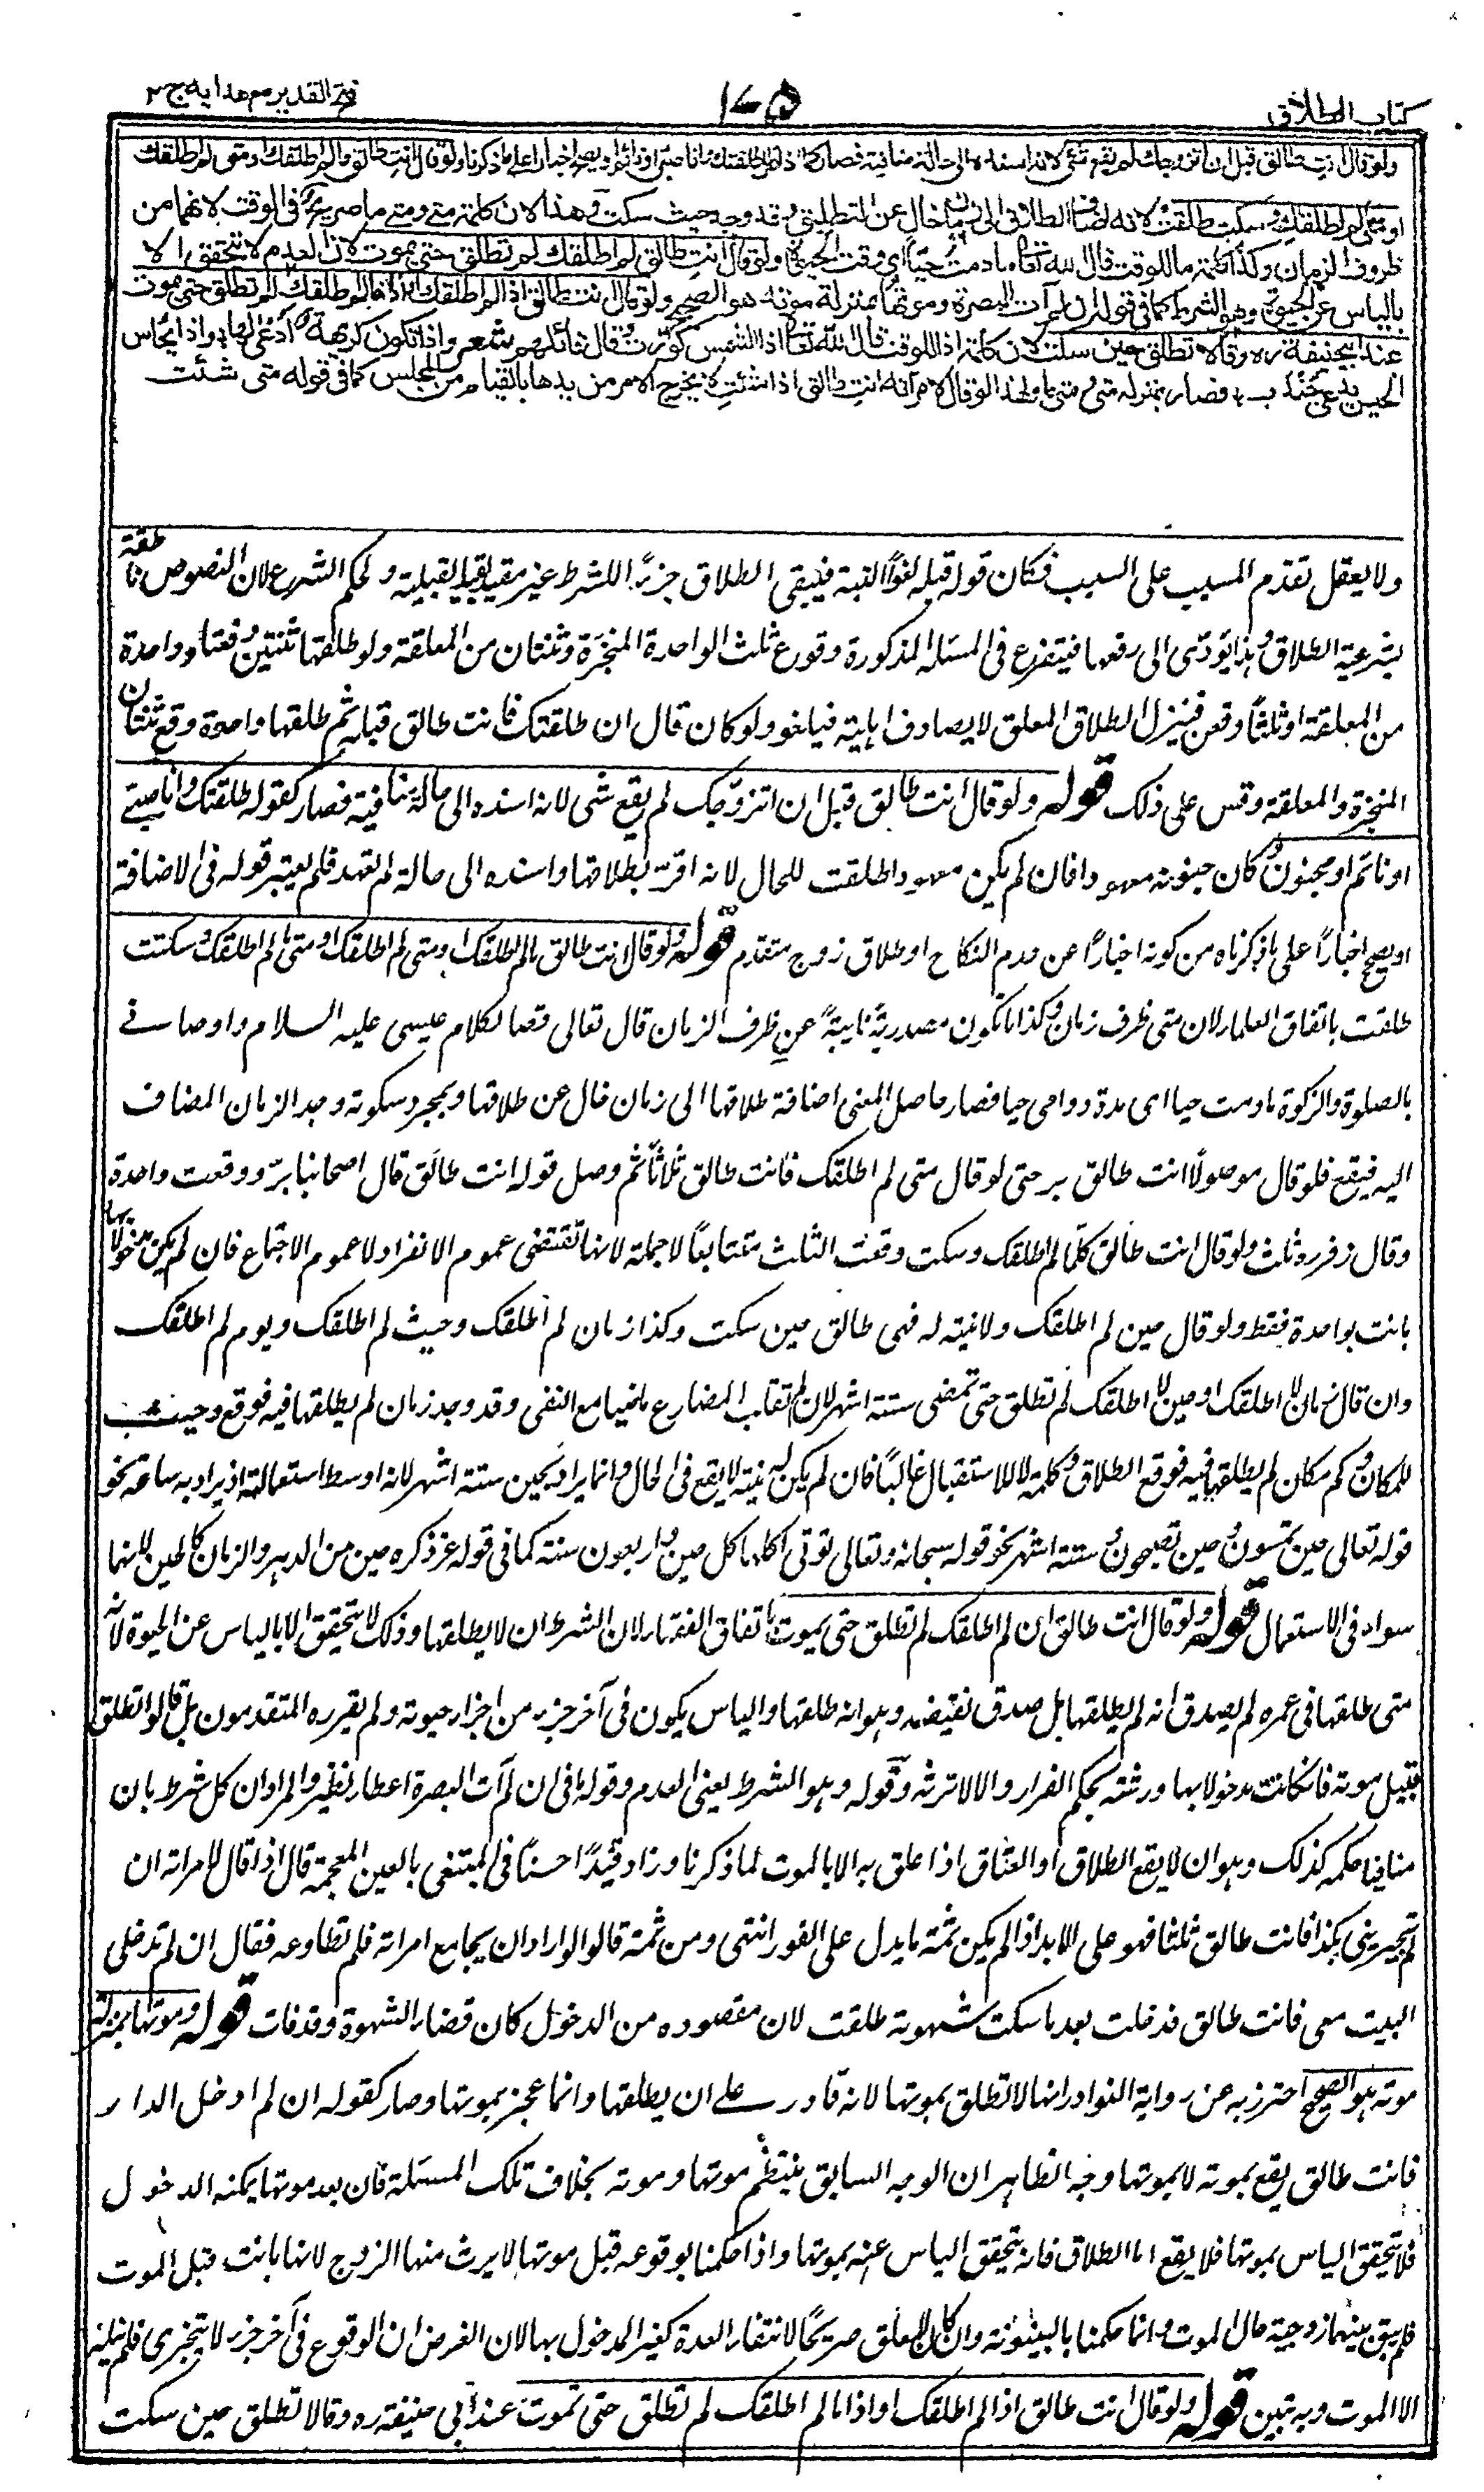 كتاب الطلاق
١٧٥
فتح القدير مع هدايه ج ٣
ولو قال انت طالق قبل ان اتزوجك لم يقع شئ لانه اسنده الى حالة منافية فصار كما اذا قال طلقتك وانا صبى او نائم او يصح اخبارا على ما ذكرنا ولو قال انت طالق ما لم اطلقك او متى لم اطلقك
او متى ما لم اطلقك وسكت طلقت لانه اضاف الطلاق الى زمان خال عن التطليق وقد وجد حيث سكت وهذا لان كلمة متى ومتى ما صريح فى الوقت لانهما من
ظروف الزمان وكذا كلمة ما للوقت قال الله تعالى ما دمت حيا اى وقت الحيوة ولو قال انت طالق ان لم اطلقك لم تطلق حتى يموت لان العدم لا يتحقق الا
بالياس عن الحيوة وهو الشرط كما فى قوله ان لم آت البصرة وموتها بمنزلة موته هو الصحيح ولو قال انت طالق اذا لم اطلقك او اذا ما لم اطلقك لم تطلق حتى يموت
عند ابى حنيفة ره وقالا تطلق حين سكت لان كلمة اذا للوقت قال الله تعالى اذا الشمس كورت وقال قائلهم شعر واذا تكون كريهة ادعى لها * واذا يحاس
الحيس يدعى جندب * فصار بمنزلة متى ومتى ما ولهذا لو قال لامرأته انت طالق اذا شئت لا يخرج الامر من يدها بالقيام من المجلس كما فى قوله متى شئت
ولا يعقل تقدم المسبب على السبب فكان قوله قبله لغوا البتة فيبقى الطلاق جزاء للشرط غير مقيد بالقبلية ولحكم الشرع لان النصوص ناطقة
بشرعية الطلاق وهذا يؤدى الى رفعها فيتفرع فى المسئلة المذكورة وقوع ثلث الواحدة المنجزة وثنتان من المعلقة ولو طلقها ثنتين وقعتا وواحدة
من المعلقة او ثلثا وقعن فينزل الطلاق المعلق لا يصادف اهلية فيلغو ولو كان قال ان طلقتك فانت طالق قبله ثم طلقها واحدة وقع ثنتان
المنجزة والمعلقة وقس على ذلك قوله ولو قال انت طالق قبل ان اتزوجك لم يقع شى لانه اسنده الى حالة منافية فصار كقوله طلقتك وانا صبے
او نائم او مجنون وكان جنونه معهودا فان لم يكن معهودا طلقت للحال لانه اقر بطلاقها واسنده الى حالة لم تعهد فلم يعتبر قوله فى الاضافة
او يصح اخبارا على ما ذكرناه من كونه اخبارا عن عدم النكاح او طلاق زوج متقدم قوله ولو قال انت طالق ما لم اطلقك او متى لم اطلقك او متى ما لم اطلقك وسكت
طلقت باتفاق العلماء لان متى ظرف زمان وكذا ما تكون مصدرية نايبة عن ظرف الزمان قال تعالى قصا لكلام عيسى عليه السلام واوصانے
بالصلوة والزكوة ما دمت حيا اى مدة دوامى حيا فصار حاصل المعنى اضافة طلاقها الى زمان خال عن طلاقها وبمجرد سكوته وجد الزمان المضاف
اليه فيقع فلو قال موصولا انت طالق بر حتى لو قال متى لم اطلقك فانت طالق ثلاثا ثم وصل قوله انت طالق قال اصحابنا بر ووقعت واحدة
وقال زفر ره ثلث ولو قال انت طالق كلما لم اطلقك وسكت وقعت الثلث متتابعا لا جملة لانها تقتضى عموم الانفراد لا عموم الاجتماع فان لم يكن مدخولا بها
بانت بواحدة فقط ولو قال حين لم اطلقك ولا نية له فهى طالق حين سكت وكذا زمان لم اطلقك وحيث لم اطلقك ويوم لم اطلقك
وان قال زمان لا اطلقك او حين لا اطلقك لم تطلق حتى تمضى ستة اشهر لان لم تقلب المضارع ماضيا مع النفى وقد وجد زمان لم يطلقها فيه فوقع وحيث
للمكان وكم مكان لم يطلقها فيه فوقع الطلاق وكلمة لا للاستقبال غالبا فان لم يكن له نية لا يقع فى الحال وانما يراد بحين ستة اشهر لانه اوسط استعمالته اذ يراد به ساعة نحو
قوله تعالى حين تمسون وحين تصبحون وستة اشهر نحو قوله سبحانه وتعالى تؤتى اكلها كل حين واربعون سنة كما فى قوله عز ذكره حين من الدهر والزمان كالحين لانها
سواء فى الاستعمال قوله ولو قال انت طالق ان لم اطلقك لم تطلق حتى يموت باتفاق الفقهاء لان الشرط ان لا يطلقها وذلك لا يتحقق الا بالياس عن الحيوة لانه
متى طلقها فى عمره لم يصدق انه لم يطلقها بل صدق نقيضه وهو انه طلقها والياس يكون فى آخر جزء من اجزاء حيوته ولم يقرره المتقدمون بل قالوا تطلق
قبيل موته فان كانت مدخولا بها ورثته بحكم الفرار والا لا ترثه وقوله وهو الشرط يعنى العدم وقوله كما فى ان لم آت البصرة اعطاء نظير والمراد ان كل شرط بان
منافيا حكمه كذلك وهو ان لا يقع الطلاق او العتاق اذا علق به الا بالموت لما ذكرنا وزاد قيدا حسنا فى المبتغى بالغين المعجمة قال اذا قال لامراته ان
لم تخبرينى بكذا فانت طالق ثلثا فهو على الابد اذا لم يكن ثمة ما يدل على الفور انتهى ومن ثمة قالوا لو اراد ان يجامع امراته فلم تطاوعه فقال ان لم تدخلى
البيت معى فانت طالق فدخلت بعد ما سكت شهوته طلقت لان مقصوده من الدخول كان قضاء الشهوة وقد فات قوله وموتها بمنزلة
موته هو الصحيح احترز به عن رواية النوادر انها لا تطلق بموتها لانه قادر علے ان يطلقها وانما عجز بموتها وصار كقوله ان لم ادخل الدار
فانت طالق يقع بموته لا بموتها وجه الظاهر ان الوجه السابق ينتظم موتها وموته بخلاف تلك المسئلة فان بعد موتها يمكنه الدخول
فلا يتحقق الياس بموتها فلا يقع اما الطلاق فانه يتحقق الياس عنه بموتها واذا حكمنا بوقوعه قبل موتها لا يرث منها الزوج لانها بانت قبل الموت
فلم يبق بينهما زوجية حال الموت وانما حكمنا بالبينونة وان كان المعلق صريحا لانتفاء العدة كغير المدخول بها لان الفرض ان الوقوع فى آخر جزء لا يتجزى فلم يليه
الا الموت وبه تبين قوله ولو قال انت طالق اذا لم اطلقك او اذا ما لم اطلقك لم تطلق حتى تموت عند ابى حنيفة ره وقالا تطلق حين سكت